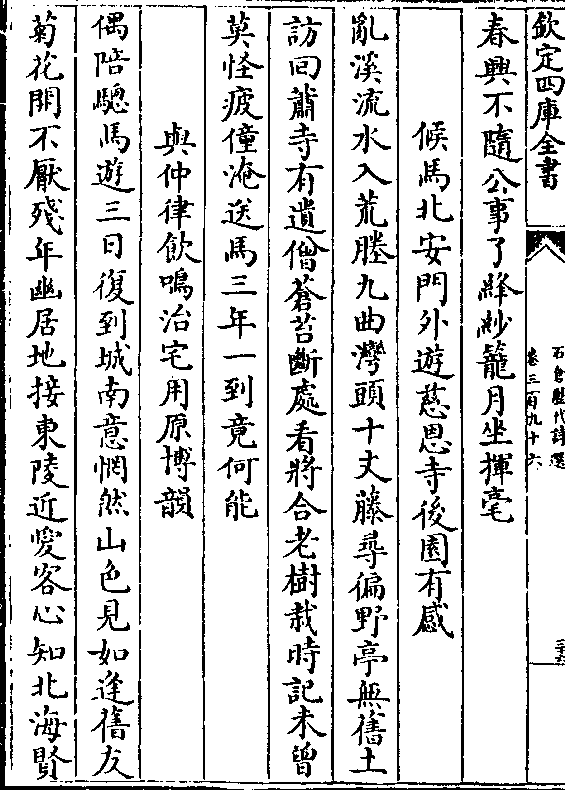 欽定四庫全書
石倉歴代詩選
卷三百九十六
春興不隨公事了絳紗籠月坐揮毫
候馬北安門外遊慈恩寺後園有感
亂溪流水入荒塍九曲灣頭十丈藤尋偏野亭無舊土
訪回蕭寺有遺僧蒼苔斷處看將合老樹栽時記未曾
莫怪疲僮淹送馬三年一到竟何能
與仲律飲鳴治宅用原博韻
偶陪驄馬遊三日復到城南意惘然山色見如逢舊友
菊花開不厭殘年幽居地接東陵近愛客心知北海賢